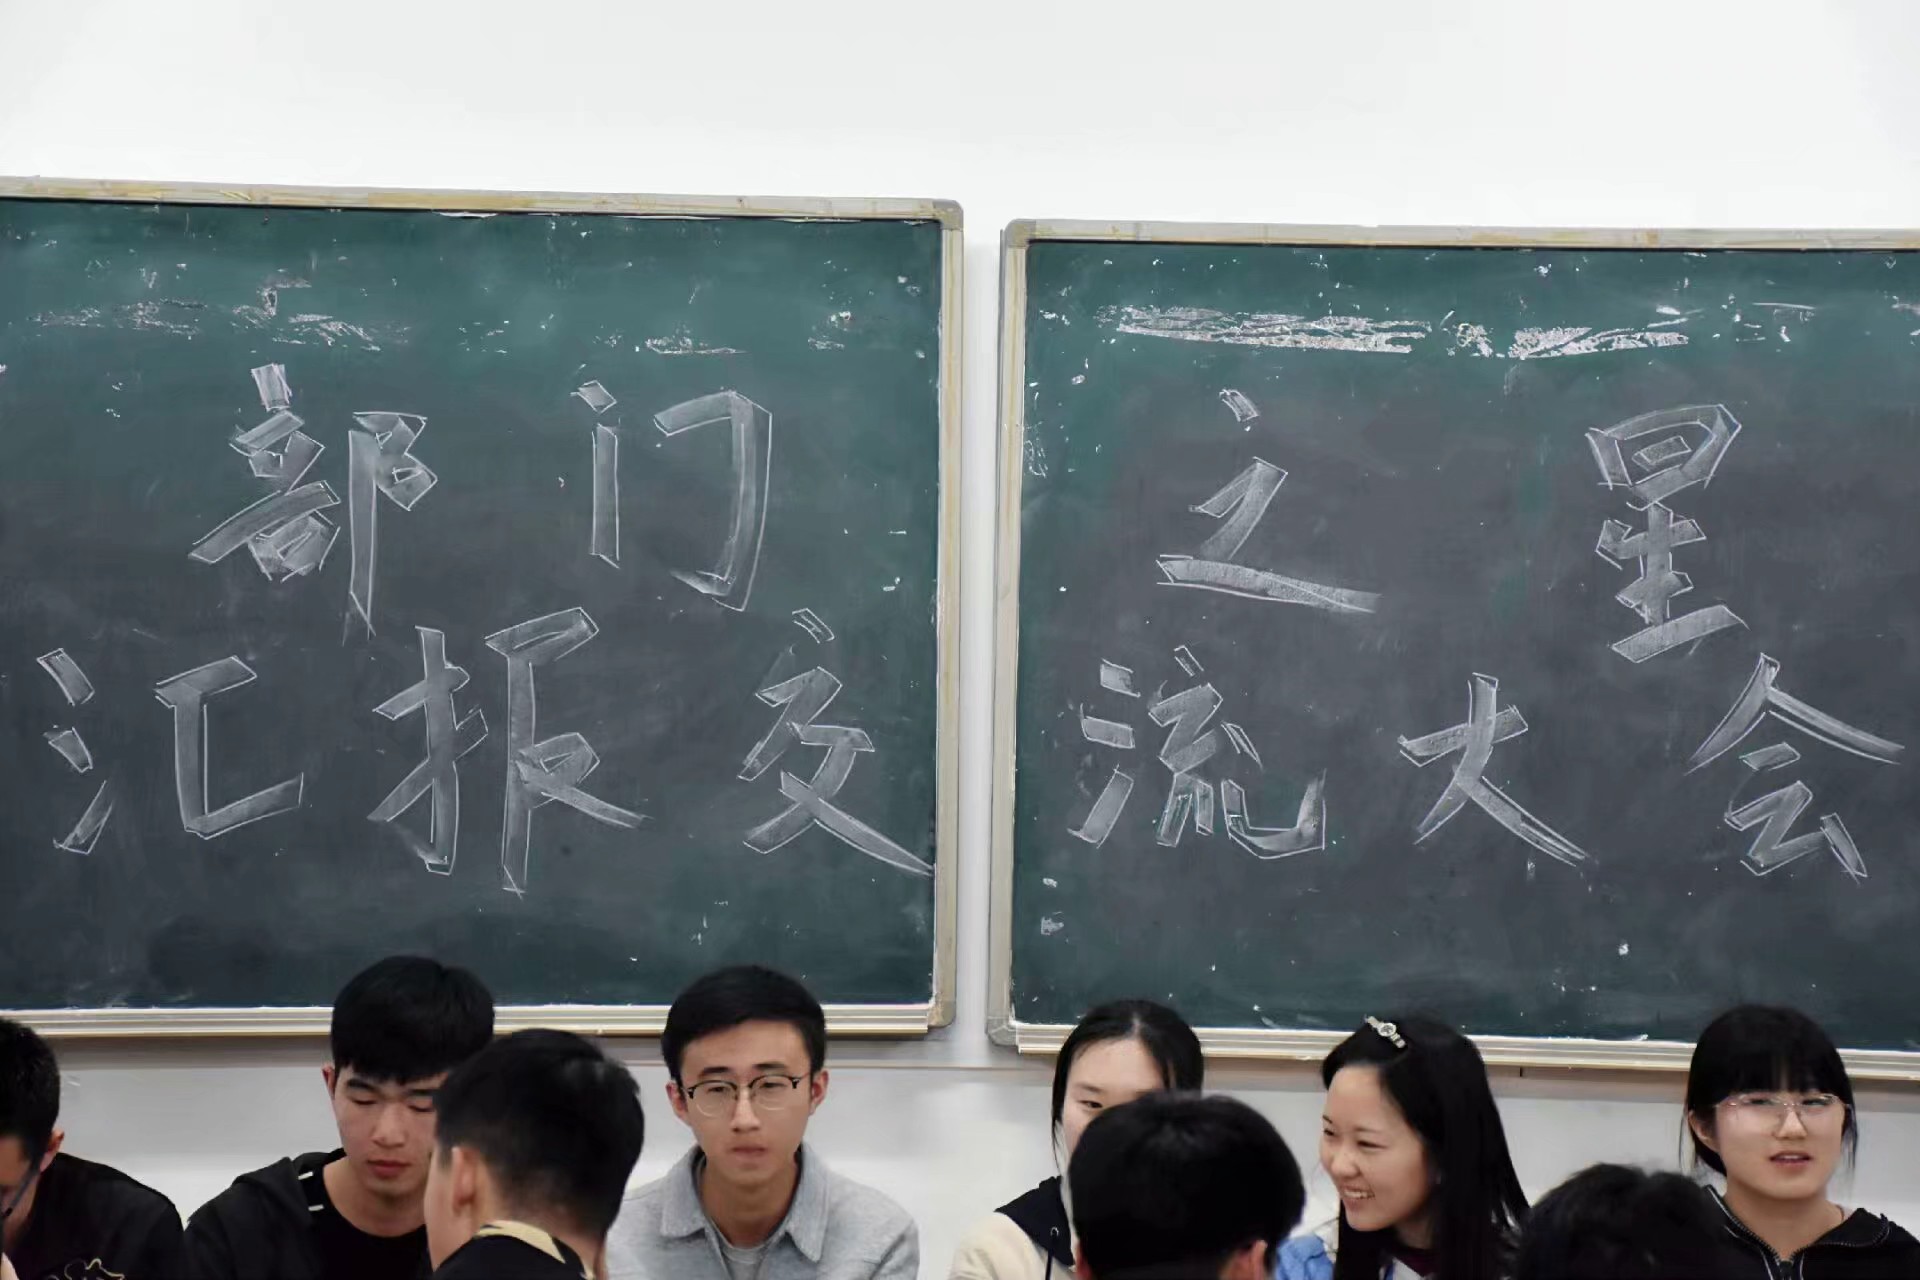 部门之星
汇报交流大会